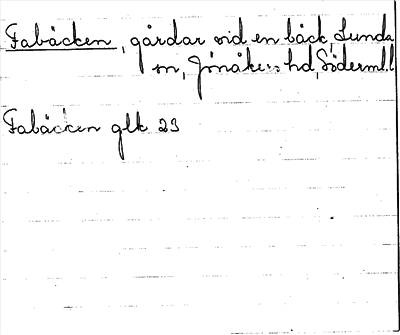 Fabäcken, gårdar vid en bäck, Lunda
sn, Jönåkers hd, Söderml.
Fabäcken glk 23